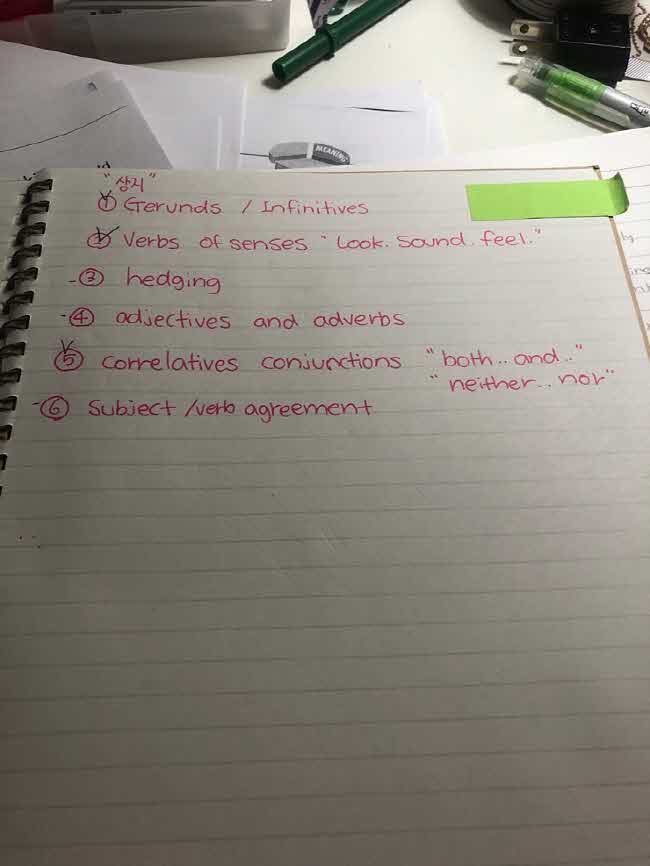 MEANING
"상지"
① Gerunds / Infinitives
② Verbs of senses "Look. Sound. feel."
-③ hedging
-④ adjectives and adverbs
⑤ correlatives conjunctions "both.. and.."
"neither.. nor"
-⑥ Subject /verb agreement